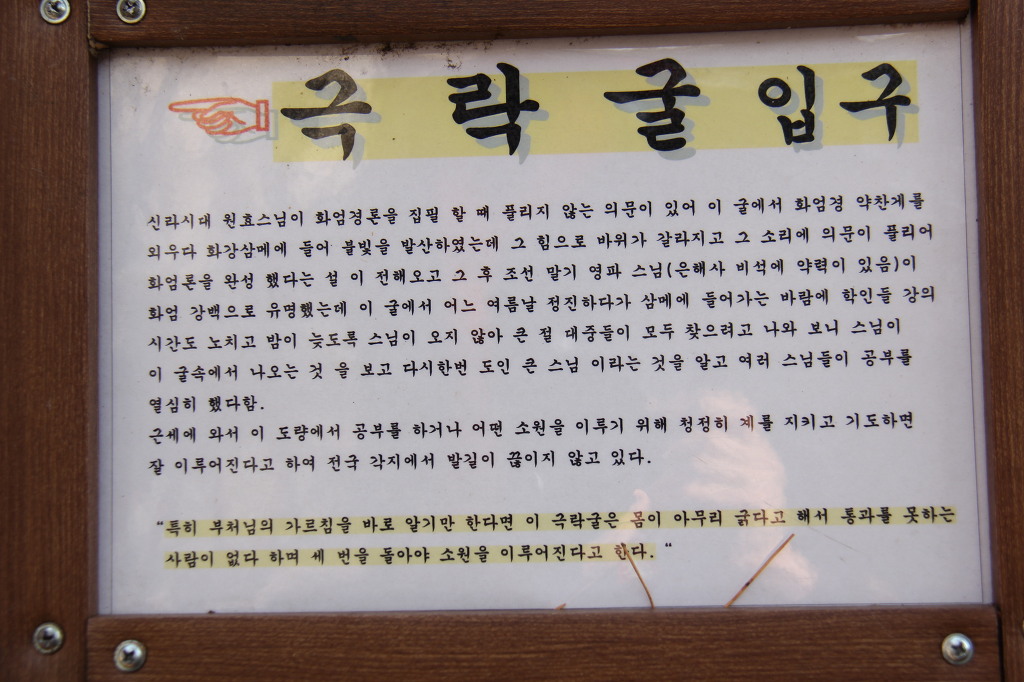 극락굴입구
신라시대 원효스님이 화엄경론을 집필 할 때 풀리지 않는 의문이 있어 이 굴에서 화엄경 약찬게를
외우다 화강삼메에 들어 불빛을 발산하였는데 그 힘으로 바위가 갈라지고 그 소리에 의문이 풀리어
화엄론을 완성 했다는 설 이 전해오고 그 후 조선 말기 영파 스님(은해사 비석에 약력이 있음)이
화엄 강백으로 유명했는데 이 굴에서 어느 여름날 정진하다가 삼메에 들어가는 바람에 학인들 강의
시간도 노치고 밤이 늦도록 스님이 오지 않아 큰 절 대중들이 모두 찾으려고 나와 보니 스님이
이 굴속에서 나오는 것 을 보고 다시한번 도인 큰 스님 이라는 것을 알고 여러 스님들이 공부를
열심히 했다함.
근세에 와서 이 도량에서 공부를 하거나 어떤 소원을 이루기 위해 청정히 계를 지키고 기도하면
잘 이루어진다고 하여 전국 각지에서 발길이 끊이지 않고 있다.
“특히 부처님의 가르침을 바로 알기만 한다면 이 극락굴은 몸이 아무리 굵다고 해서 통과를 못하는
사람이 없다 하며 세 번을 돌아야 소원을 이루어진다고 한다. “